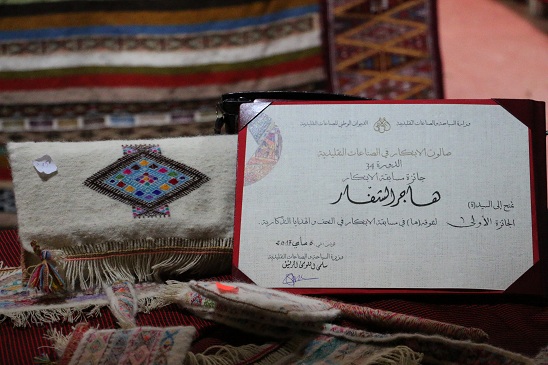 وزارة السياحة والصناعات التقليدية
الديوان الوطني للصناعات التقليدية
صالون الابتكار في الصناعات التقليدية
الدورة 34
جائزة مسابقة الابتكار
تمنح إلى السيد(ة)
هاجر الشفار
الجائزة الأولى لفوزه(ها) في مسابقة الابتكار في التحف والهدايا التذكارية.
تونس في 6 ماي 2017
وزيرة السياحة والصناعات التقليدية
سلمى اللومي الرقيق